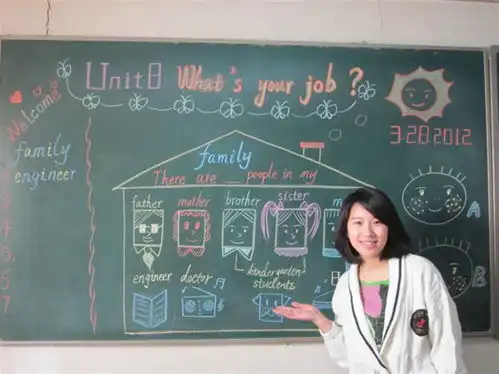 Unit 8 What's your job?
Welcome
family
engineer
3.28.2012
family
There are ___ people in my
father mother brother sister m
engineer doctor kindergarten
students
A
B
4
5
7